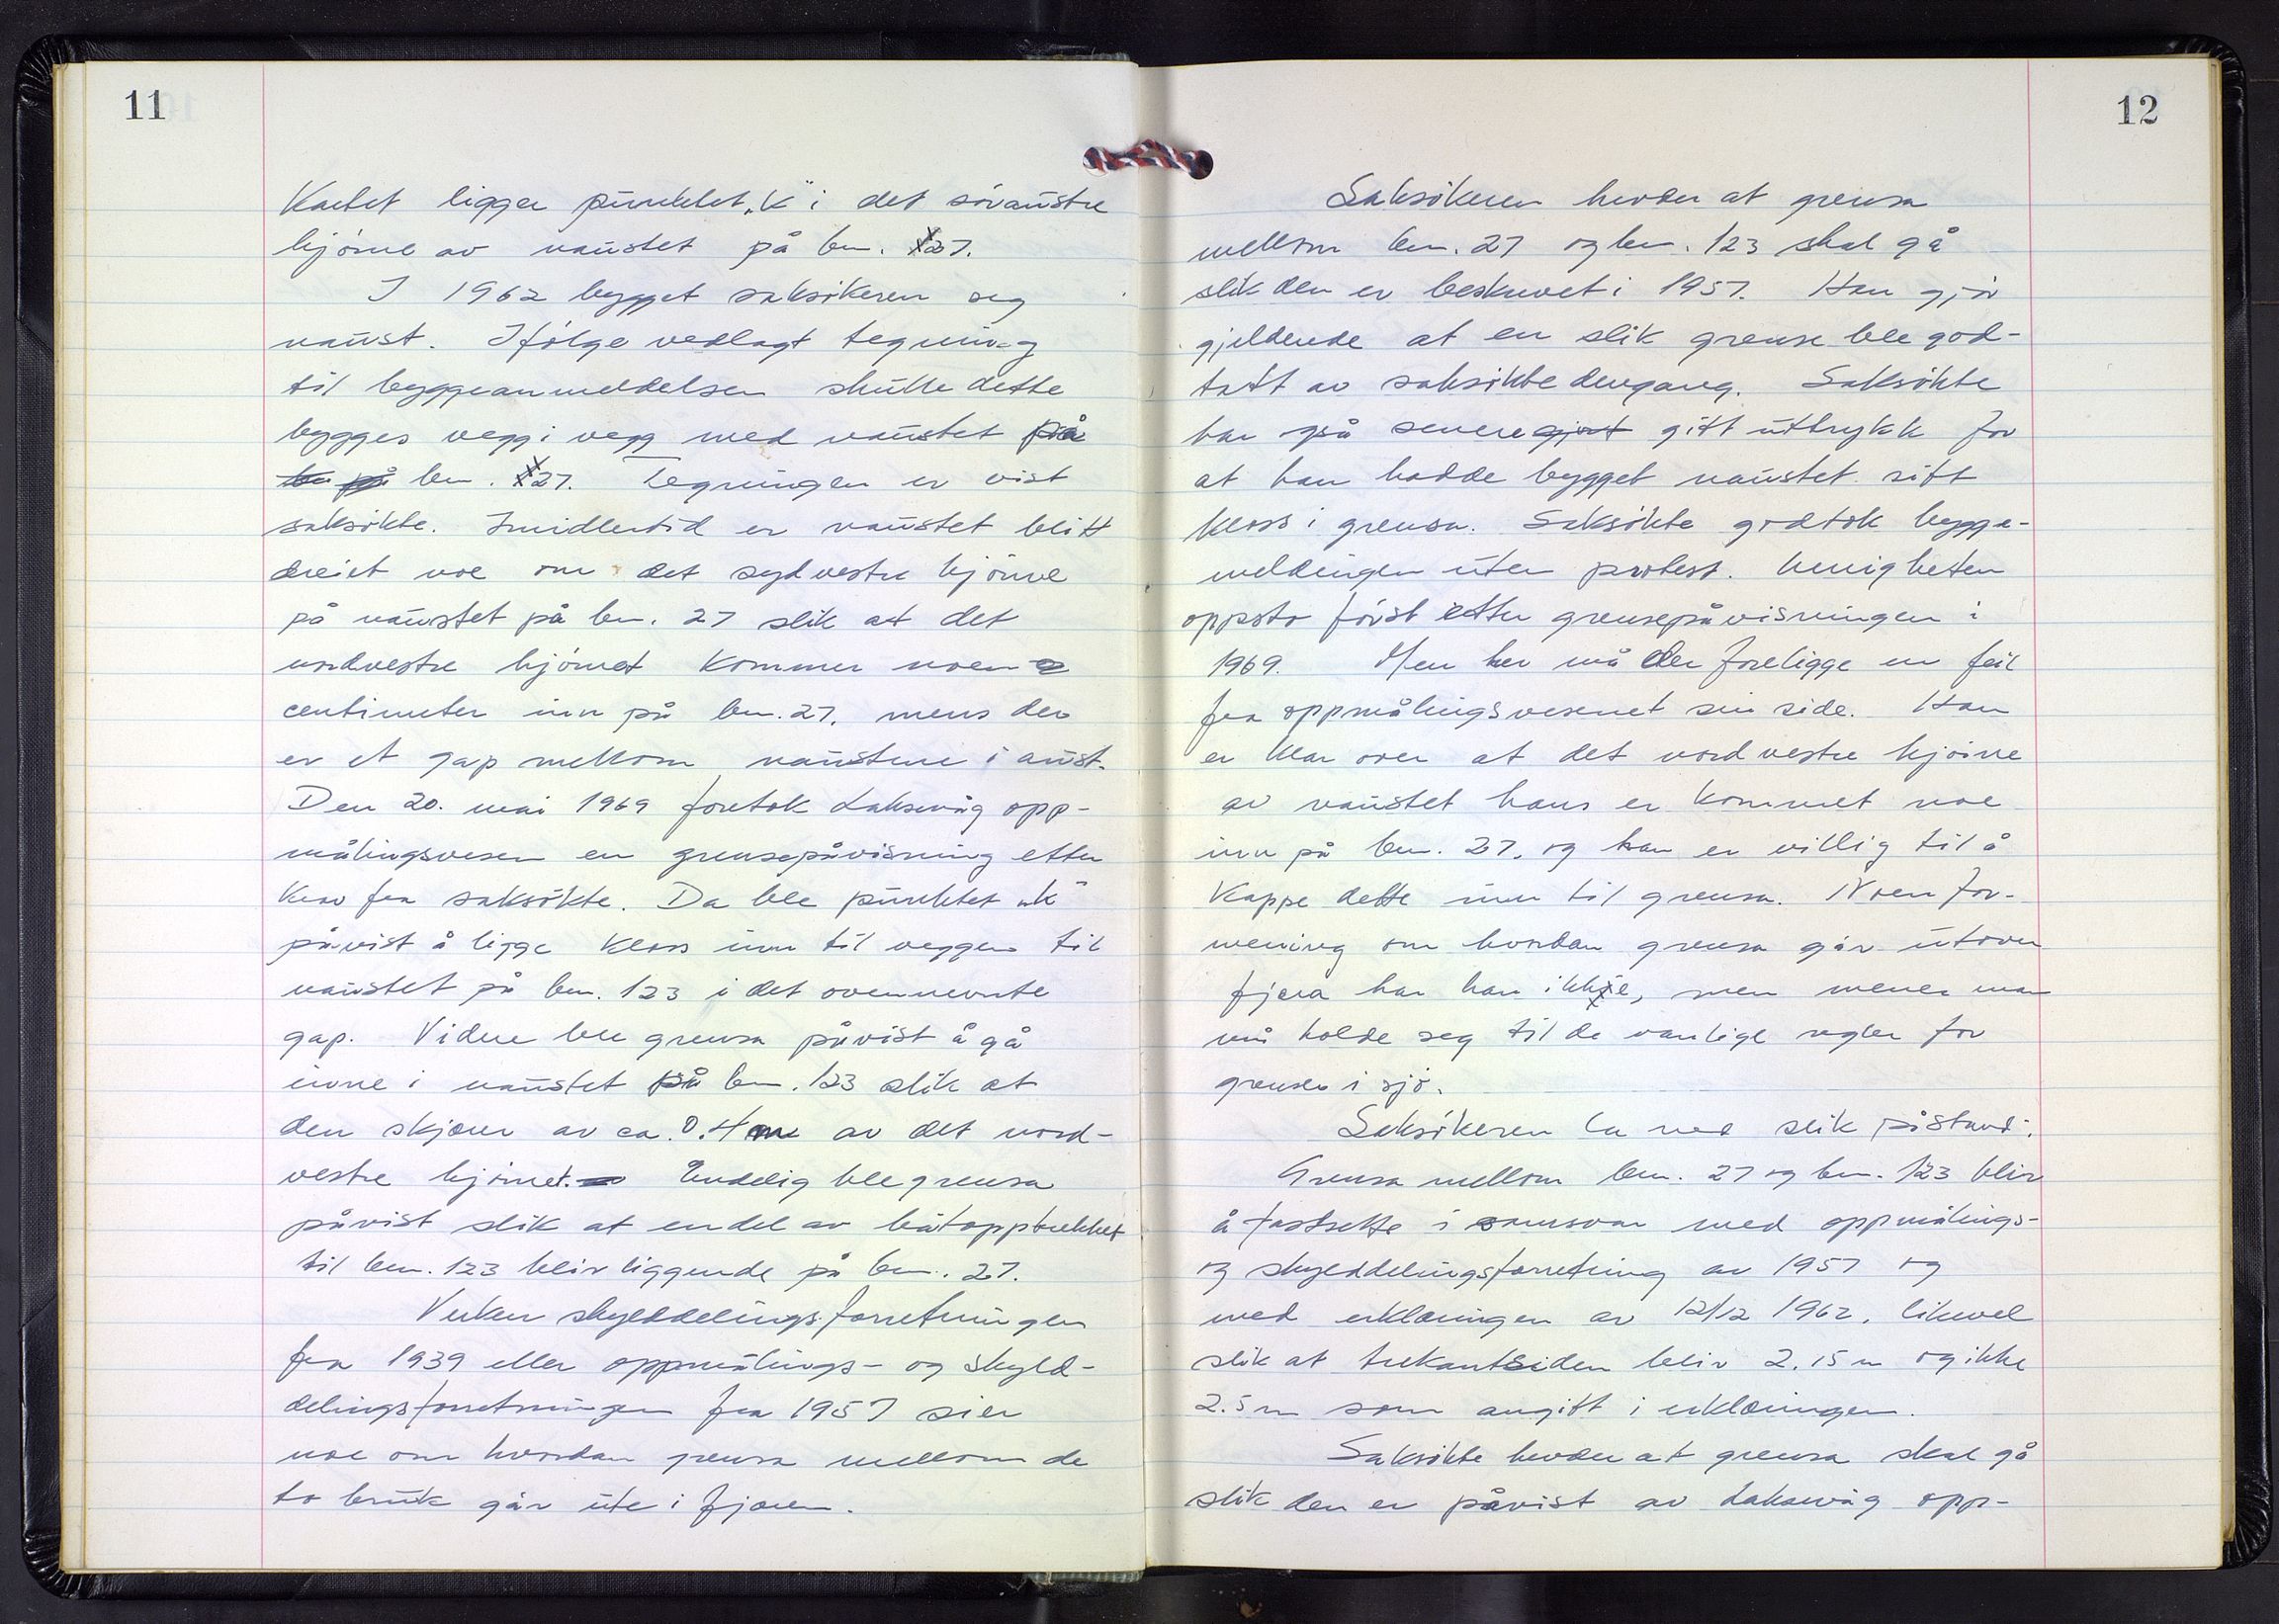 11
Kartet ligger punktet „K" i det søraustre
hjørne av naustet på bnr. 27.
I 1962 bygget saksøkeren seg
naust. Ifølge vedlagt tegning
til byggeanmeldelsen skulle dette
bygges vegg i vegg med naustet på
bnr. 27. Tegningen er vist
saksøkte. Imidlertid er naustet blitt
dreiet noe om det sydvestre hjørne
på naustet på bnr. 27 slik at det
nordvestre hjørnet kommer noen
centimeter inn på bnr. 27, mens der
er et gap mellom naustene i aust.
Den 20. mai 1969 foretok Laksevåg opp-
målingsvesen en grensepåvisning etter
krav fra saksøkte. Da ble punktet „k"
påvist å ligge kloss inn til veggen til
naustet på bnr. 123 i det ovennevnte
gap. Videre ble grensa påvist å gå
inne i naustet på bnr. 123 slik at
den skjærer av ca. 0.4m av det nord-
vestre hjørnet. Endelig ble grensa
påvist slik at en del av båtopptrekket
til bnr. 123 blir liggende på bnr. 27.
Verken skylddelingsforretningen
fra 1939 eller oppmålings- og skyld-
delingsforretningen fra 1957 sier
noe om hvordan grensa mellom de
to bruk går ute i fjæren.
12
Saksøkeren hevder at grensa
mellom bnr. 27 og bnr. 123 skal gå
slik den er beskrevet i 1957. Han gjør
gjeldende at en slik grense ble god-
tatt av saksøkte dengang. Saksøkte
har også senere gjort gitt uttrykk for
at han hadde bygget naustet sitt
kloss i grensa. Saksøkte godtok bygge-
meldingen uten protest. Uenigheten
oppsto først etter grensepåvisningen i
1969. Men her må der foreligge en feil
fra oppmålingsvesenet sin side. Han
er klar over at det nordvestre hjørne
av naustet hans er kommet noe
inn på bnr. 27, og han er villig til å
kappe dette inn til grensa. Noen for-
mening om hvordan grensa går utover
fjæra har han ikke, men mener man
må holde seg til de vanlige regler for
grenser i sjø.
Saksøkeren la ned slik påstand:
Grensa mellom bnr. 27 og bnr. 123 blir
å fastsette i samsvar med oppmålings-
og skylddelingsforretning av 1957 og
med erklæringen av 12/12 1962, likevel
slik at trekantsiden blir 2.15 m og ikke
2.5 m som angitt i erklæringen.
Saksøkte hevder at grensa skal gå
slik den er påvist av Laksevåg opp-